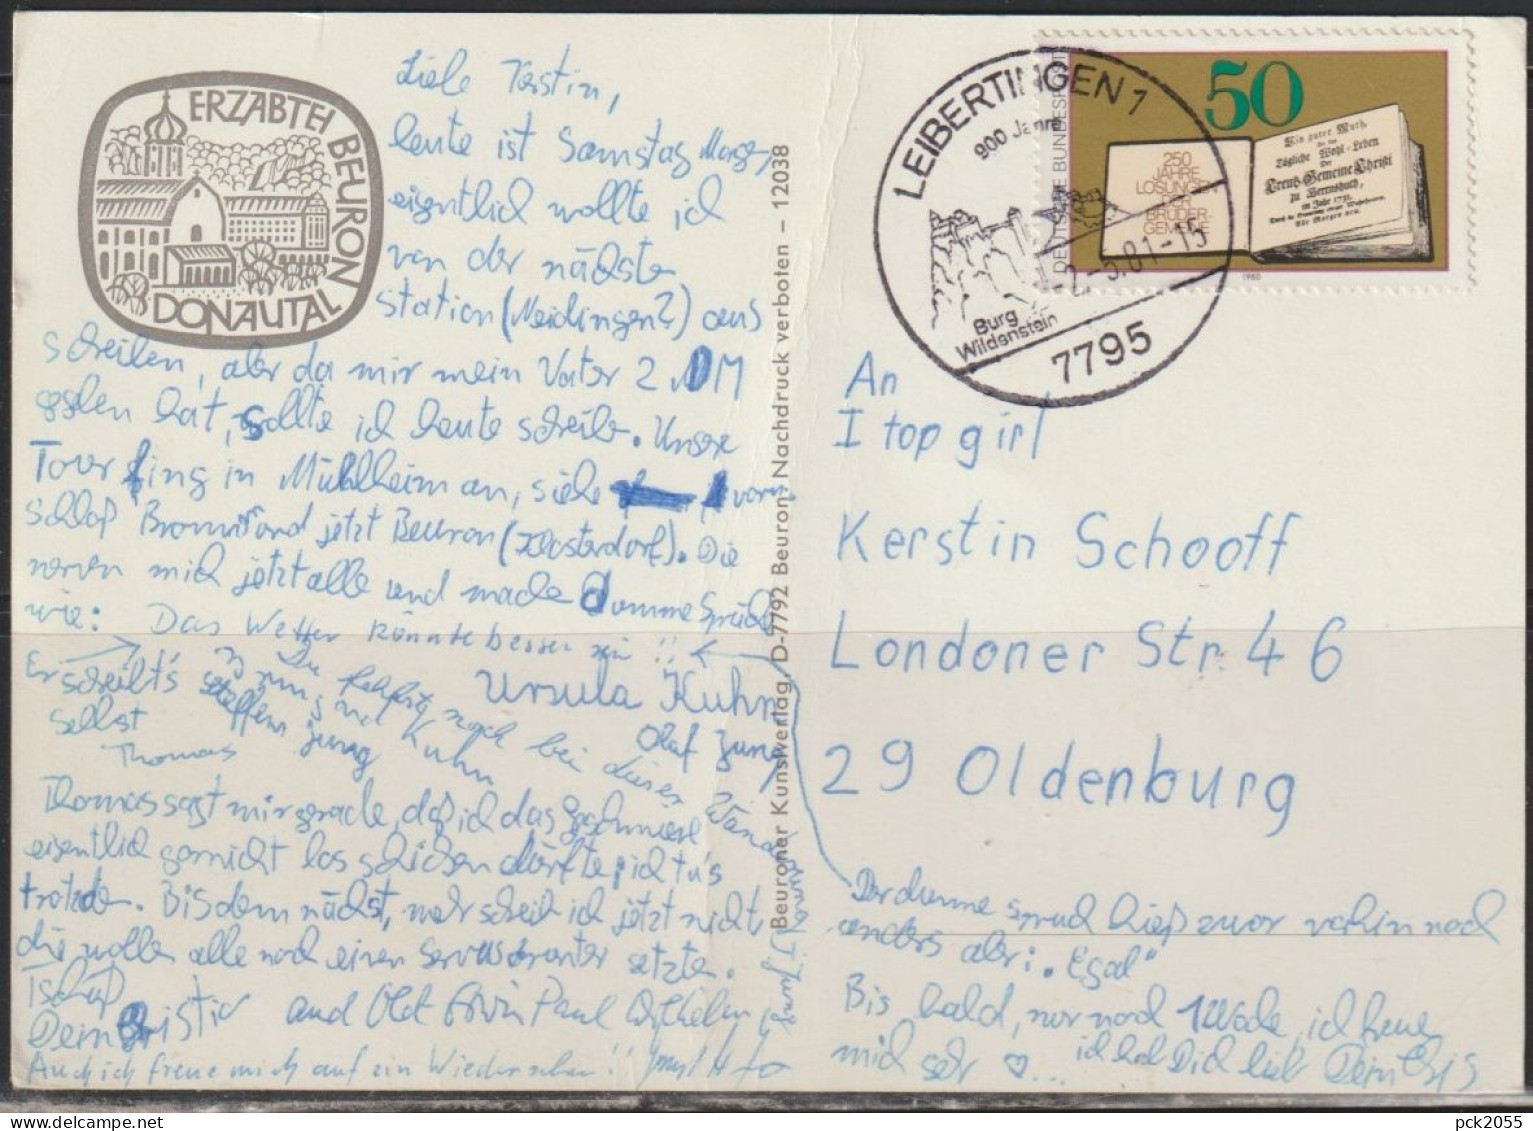 ERZABTEI BEURON
DONAUTAL
Liebe Kerstin,
heute ist Samstag Morgen,
eigentlich wollte ich
von der nächste
station (Neidingen?) aus
schreiben, aber da mir mein Vater 2 DM
geben hat, sollte ich heute schreib. Unsere
Tour fing in Mühlheim an, siehe vorn
schloß Bronn und jetzt Beuron (Klosterdorf). Die
nerven mich jetzt alle und mache dumme Sprüche
wie: Das Wetter könnte besser sein !!
Er schreibt's
selbst
Thomas
Ursula Kuhn
Olaf Jung
Steffen Jung
und Kuhn
Du fehlst noch bei dieser Wanderung!
Thomas sagt mir gerade, daß ich das Geschmiere
eigentlich garnicht los schicken dürfte, ich tu's
trotzdem. Bis dem nächst, mehr schreib ich jetzt nicht
die wollen alle noch einen servus drunter setzte.
Tschüß
Dein Christir und Olat Erwin Paul Wilhelm
Auch ich freue mich auf ein Wiedersehen !!
Beuroner Kunstverlag, D-7792 Beuron, Nachdruck verboten – 12038
LEIBERTINGEN 1
900 Jahre
Burg
Wildenstein
2.-5.81-15
7795
DEUTSCHE BUNDESPOST
50
250
JAHRE
LOSUNGEN
DER
BRÜDER-
GEMEINE
Ein guter Muth,
Tägliche Wohl-Leben
Der
Creutz-Gemeine Christi
zu Herrnhuth,
im Jahr 1731.
1980
An
I top girl
Kerstin Schooff
Londoner Str 46
29 Oldenburg
Der dumme Spruch hieß zwar vorhin noch
anders aber: "Egal"
Bis bald, nur noch 1 Woche, ich freue
mich sehr ♡... ich hab Dich lieb Dein Chris
pck2055